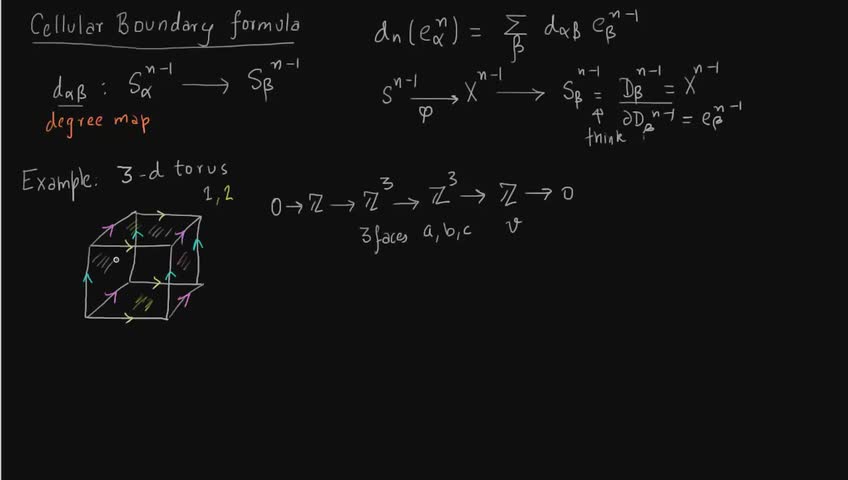 Cellular Boundary formula
dₙ(eₐⁿ) = Σ_β d_αβ e_β^{n-1}
d_αβ : S_α^{n-1} ⟶ S_β^{n-1}
degree map
S^{n-1} ⟶_φ X^{n-1} ⟶ S_β^{n-1} = D_β^{n-1} / ∂D_β^{n-1} = X^{n-1} = e_β^{n-1}
think
Example: 3-d torus
1, 2
0 → ℤ → ℤ³ → ℤ³ → ℤ → 0
3 faces a, b, c v